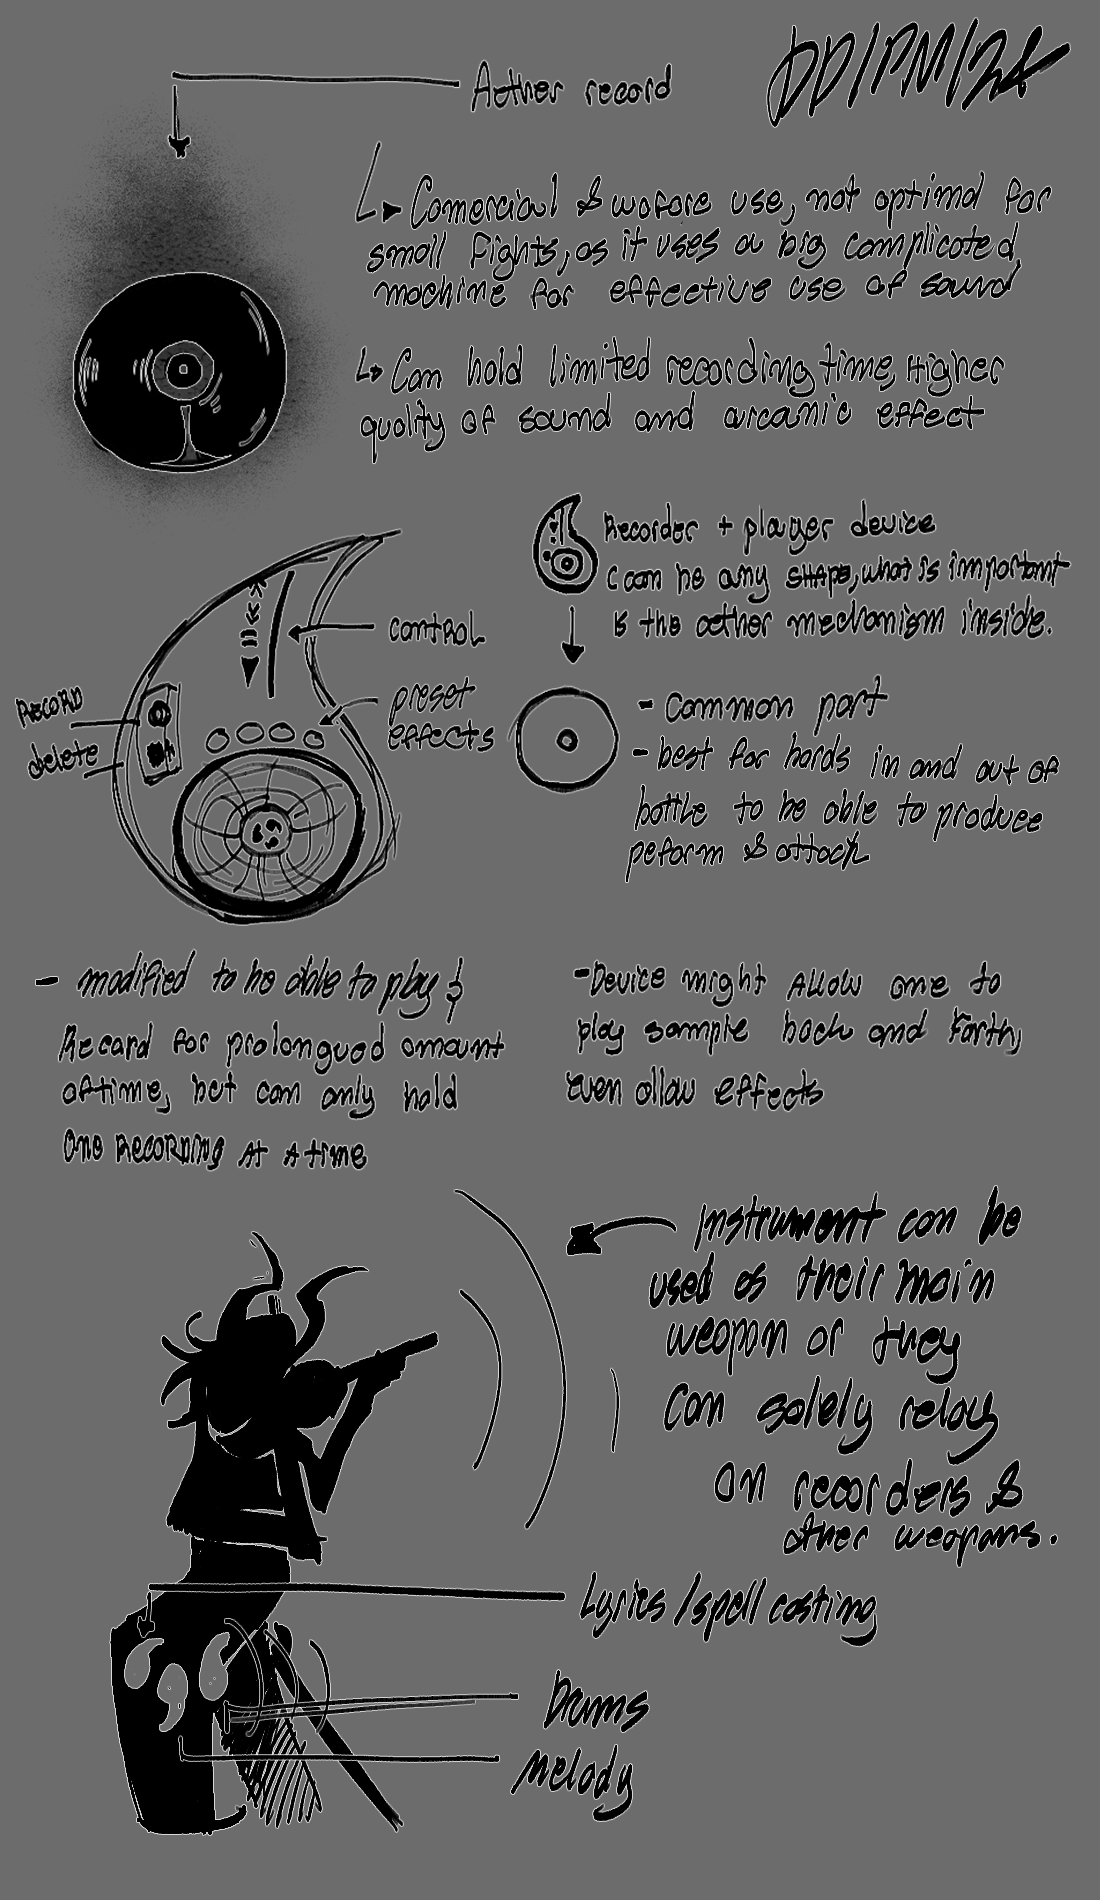 Aether record
DD/PM/24
Comercial & wafare use, not optimal for
small fights, as it uses a big complicated
machine for effective use of sound
Can hold limited recording time, Higher
quality of sound and arcanic effect
Recorder + player device
can be any SHAPE, what is important
is the aether mechanism inside.
control
preset
effects
RECORD
delete
- Common part
- best for bards in and out of
battle to be able to produce
peform & attack
- modified to be able to play &
Record for prolongued amount
of time, but can only hold
One Recording At A time
- Device might Allow one to
play sample back and forth,
even allow effects
Instrument can be
used as their main
weapon or they
can solely relay
on recorders &
other weapons.
Lyrics / spell casting
Drums
Melody